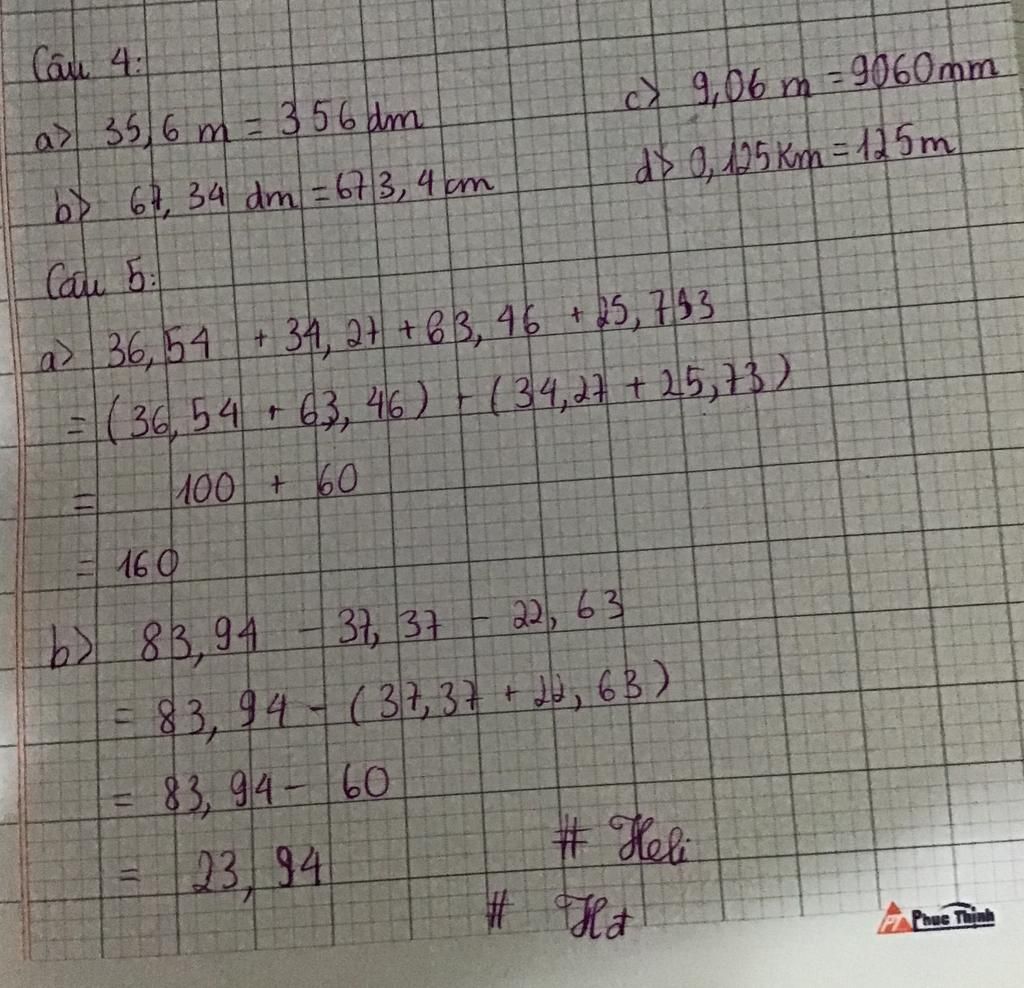 Câu 4:
a> 35,6 m = 356 dm
b> 67,34 dm = 673,4 cm
c> 9,06 m = 9060mm
d> 0,125Km = 125m
Câu 5:
a> 36,54 + 34,27 + 63,46 + 25,793
= (36,54 + 63,46) + (34,27 + 25,73)
= 100 + 60
= 160
b> 83,94 - 37,37 - 22,63
= 83,94 - (37,37 + 22,63)
= 83,94 - 60
= 23,94
# Heli
# Hd
PT Phuc Thinh